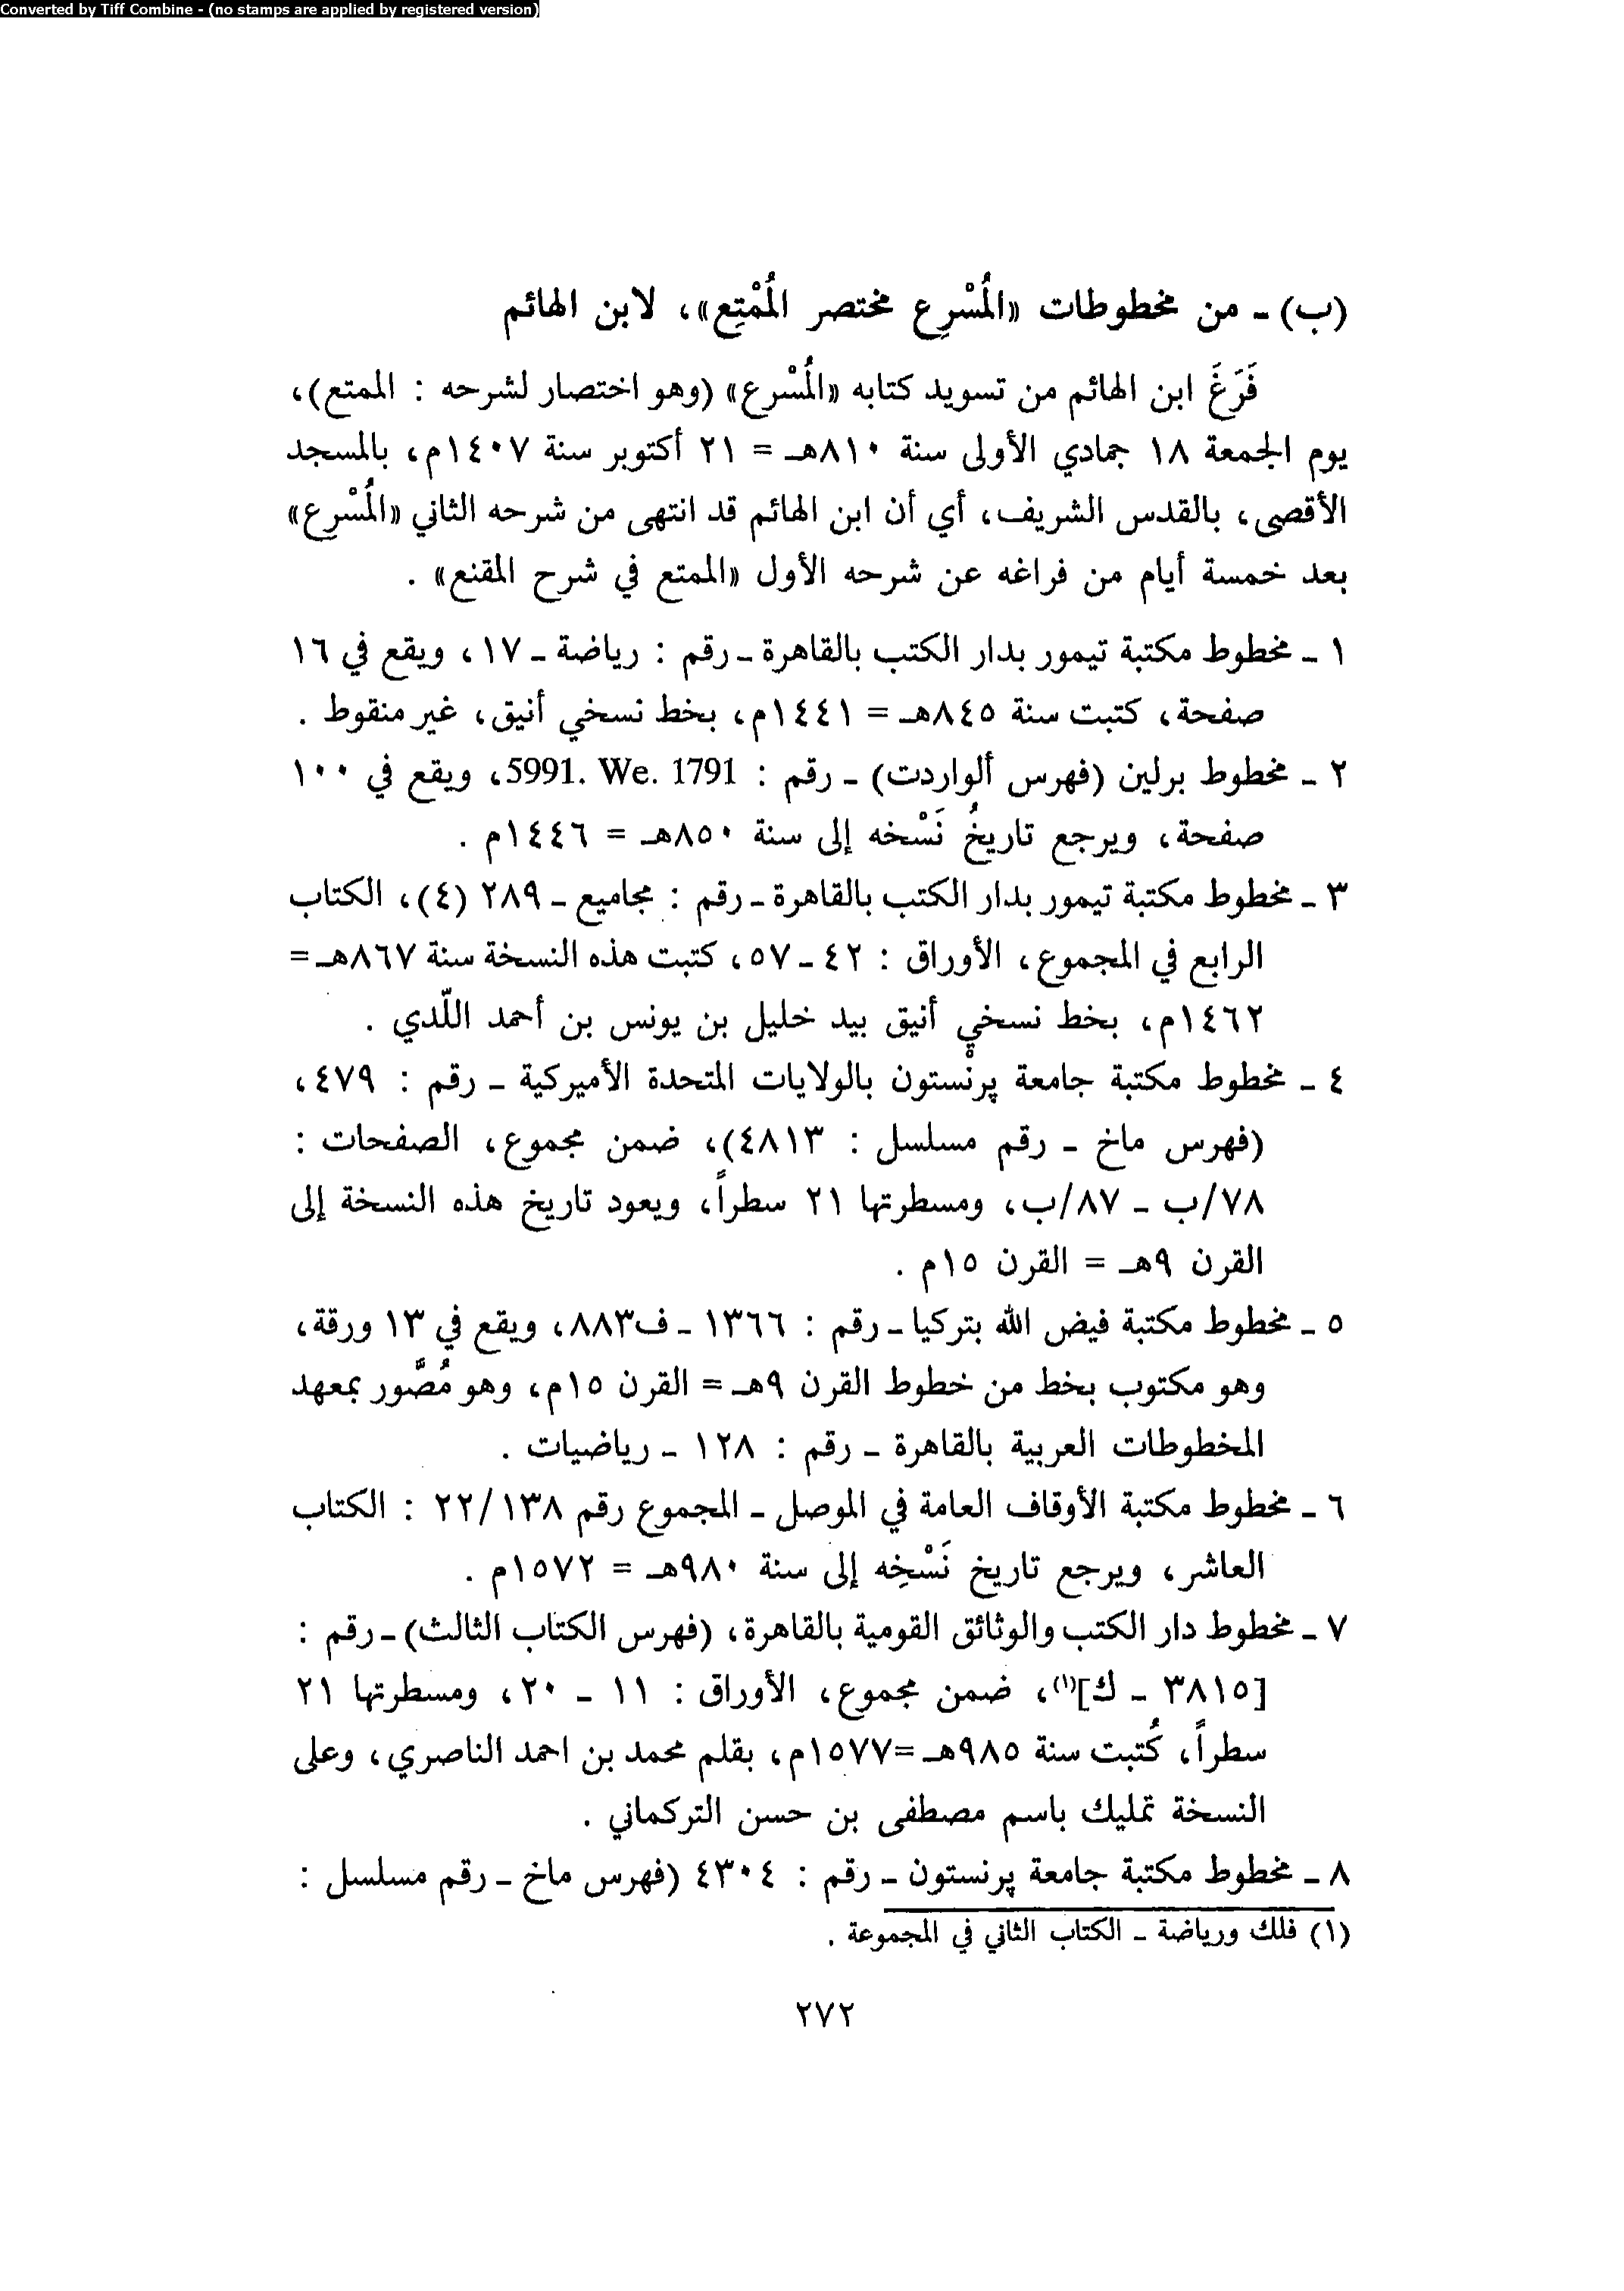 Converted by Tiff Combine - (no stamps are applied by registered version)
(ب) ـ من مخطوطات «المُسْرِع مختصر المُمْتِع»، لابن الهائم
فَرَغَ ابن الهائم من تسويد كتابه «المُسْرع» (وهو اختصار لشرحه : الممتع)،
يوم الجمعة ١٨ جمادي الأولى سنة ٨١٠هـ = ٢١ أكتوبر سنة ١٤٠٧م، بالمسجد
الأقصى، بالقدس الشريف، أي أن ابن الهائم قد انتهى من شرحه الثاني «المُسْرِع»
بعد خمسة أيام من فراغه عن شرحه الأول «الممتع في شرح المقنع» .
١ ـ مخطوط مكتبة تيمور بدار الكتب بالقاهرة ـ رقم : رياضة ـ ١٧، ويقع في ١٦
صفحة، كتبت سنة ٨٤٥هـ = ١٤٤١م، بخط نسخي أنيق، غير منقوط .
٢ ـ مخطوط برلين (فهرس ألواردت) ـ رقم : 5991. We. 1791، ويقع في ١٠٠
صفحة، ويرجع تاريخُ نَسْخه إلى سنة ٨٥٠هـ = ١٤٤٦م .
٣ ـ مخطوط مكتبة تيمور بدار الكتب بالقاهرة ـ رقم : مجاميع ـ ٢٨٩ (٤)، الكتاب
الرابع في المجموع، الأوراق : ٤٢ ـ ٥٧، كتبت هذه النسخة سنة ٨٦٧هـ =
١٤٦٢م، بخط نسخي أنيق بيد خليل بن يونس بن أحمد اللّدي .
٤ ـ مخطوط مكتبة جامعة پرنْستون بالولايات المتحدة الأميركية ـ رقم : ٤٧٩،
(فهرس ماخ ـ رقم مسلسل : ٤٨١٣)، ضمن مجموع، الصفحات :
٧٨/ب ـ ٨٧/ب، ومسطرتها ٢١ سطراً، ويعود تاريخ هذه النسخة إلى
القرن ٩هـ = القرن ١٥م .
٥ ـ مخطوط مكتبة فيض الله بتركيا ـ رقم : ١٣٦٦ ـ ف٨٨٣، ويقع في ١٣ ورقة،
وهو مكتوب بخط من خطوط القرن ٩هـ = القرن ١٥م، وهو مُصَّور بمعهد
المخطوطات العربية بالقاهرة ـ رقم : ١٢٨ ـ رياضيات .
٦ ـ مخطوط مكتبة الأوقاف العامة في الموصل ـ المجموع رقم ٢٢/١٣٨ : الكتاب
العاشر، ويرجع تاريخ نَسْخِه إلى سنة ٩٨٠هـ = ١٥٧٢م .
٧ ـ مخطوط دار الكتب والوثائق القومية بالقاهرة، (فهرس الكتاب الثالث) ـ رقم :
[٣٨١٥ ـ ك](١)، ضمن مجموع، الأوراق : ١١ ـ ٢٠، ومسطرتها ٢١
سطراً، كُتبت سنة ٩٨٥هـ =١٥٧٧م، بقلم محمد بن احمد الناصري، وعلى
النسخة تمليك باسم مصطفى بن حسن التركماني .
٨ ـ مخطوط مكتبة جامعة پرنستون ـ رقم : ٤٣٠٤ (فهرس ماخ ـ رقم مسلسل :
(١) فلك ورياضة ـ الكتاب الثاني في المجموعة .
٢٧٢